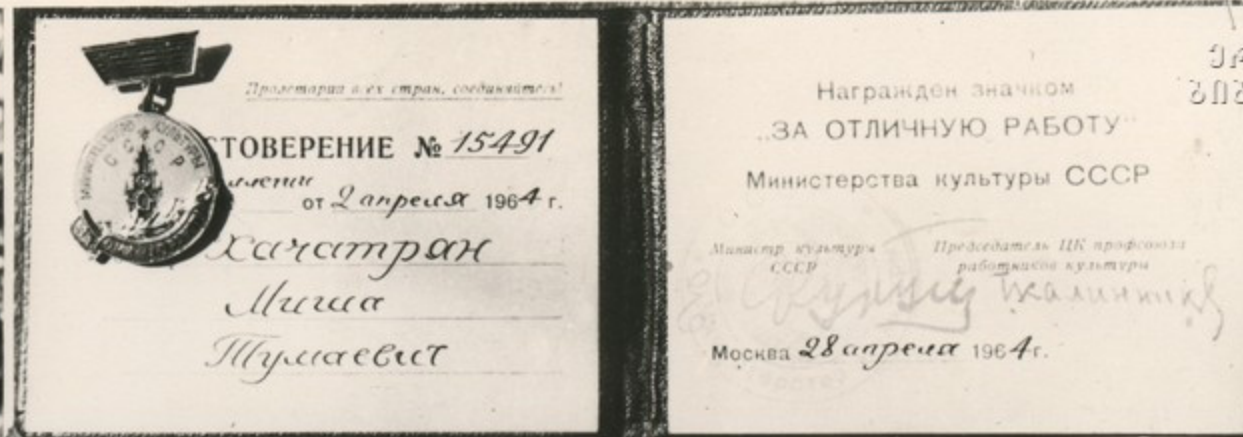 Пролетарии всех стран, соединяйтесь!
ТОВЕРЕНИЕ № 15491
от 2 апреля 1964 г.
Хачатрян
Миша
Тумаевич
МИНИСТЕРСТВО КУЛЬТУРЫ
СССР
Награжден значком
„ЗА ОТЛИЧНУЮ РАБОТУ"
Министерства культуры СССР
Министр культуры
СССР
Председатель ЦК профсоюза
работников культуры
Москва 28 апреля 1964 г.